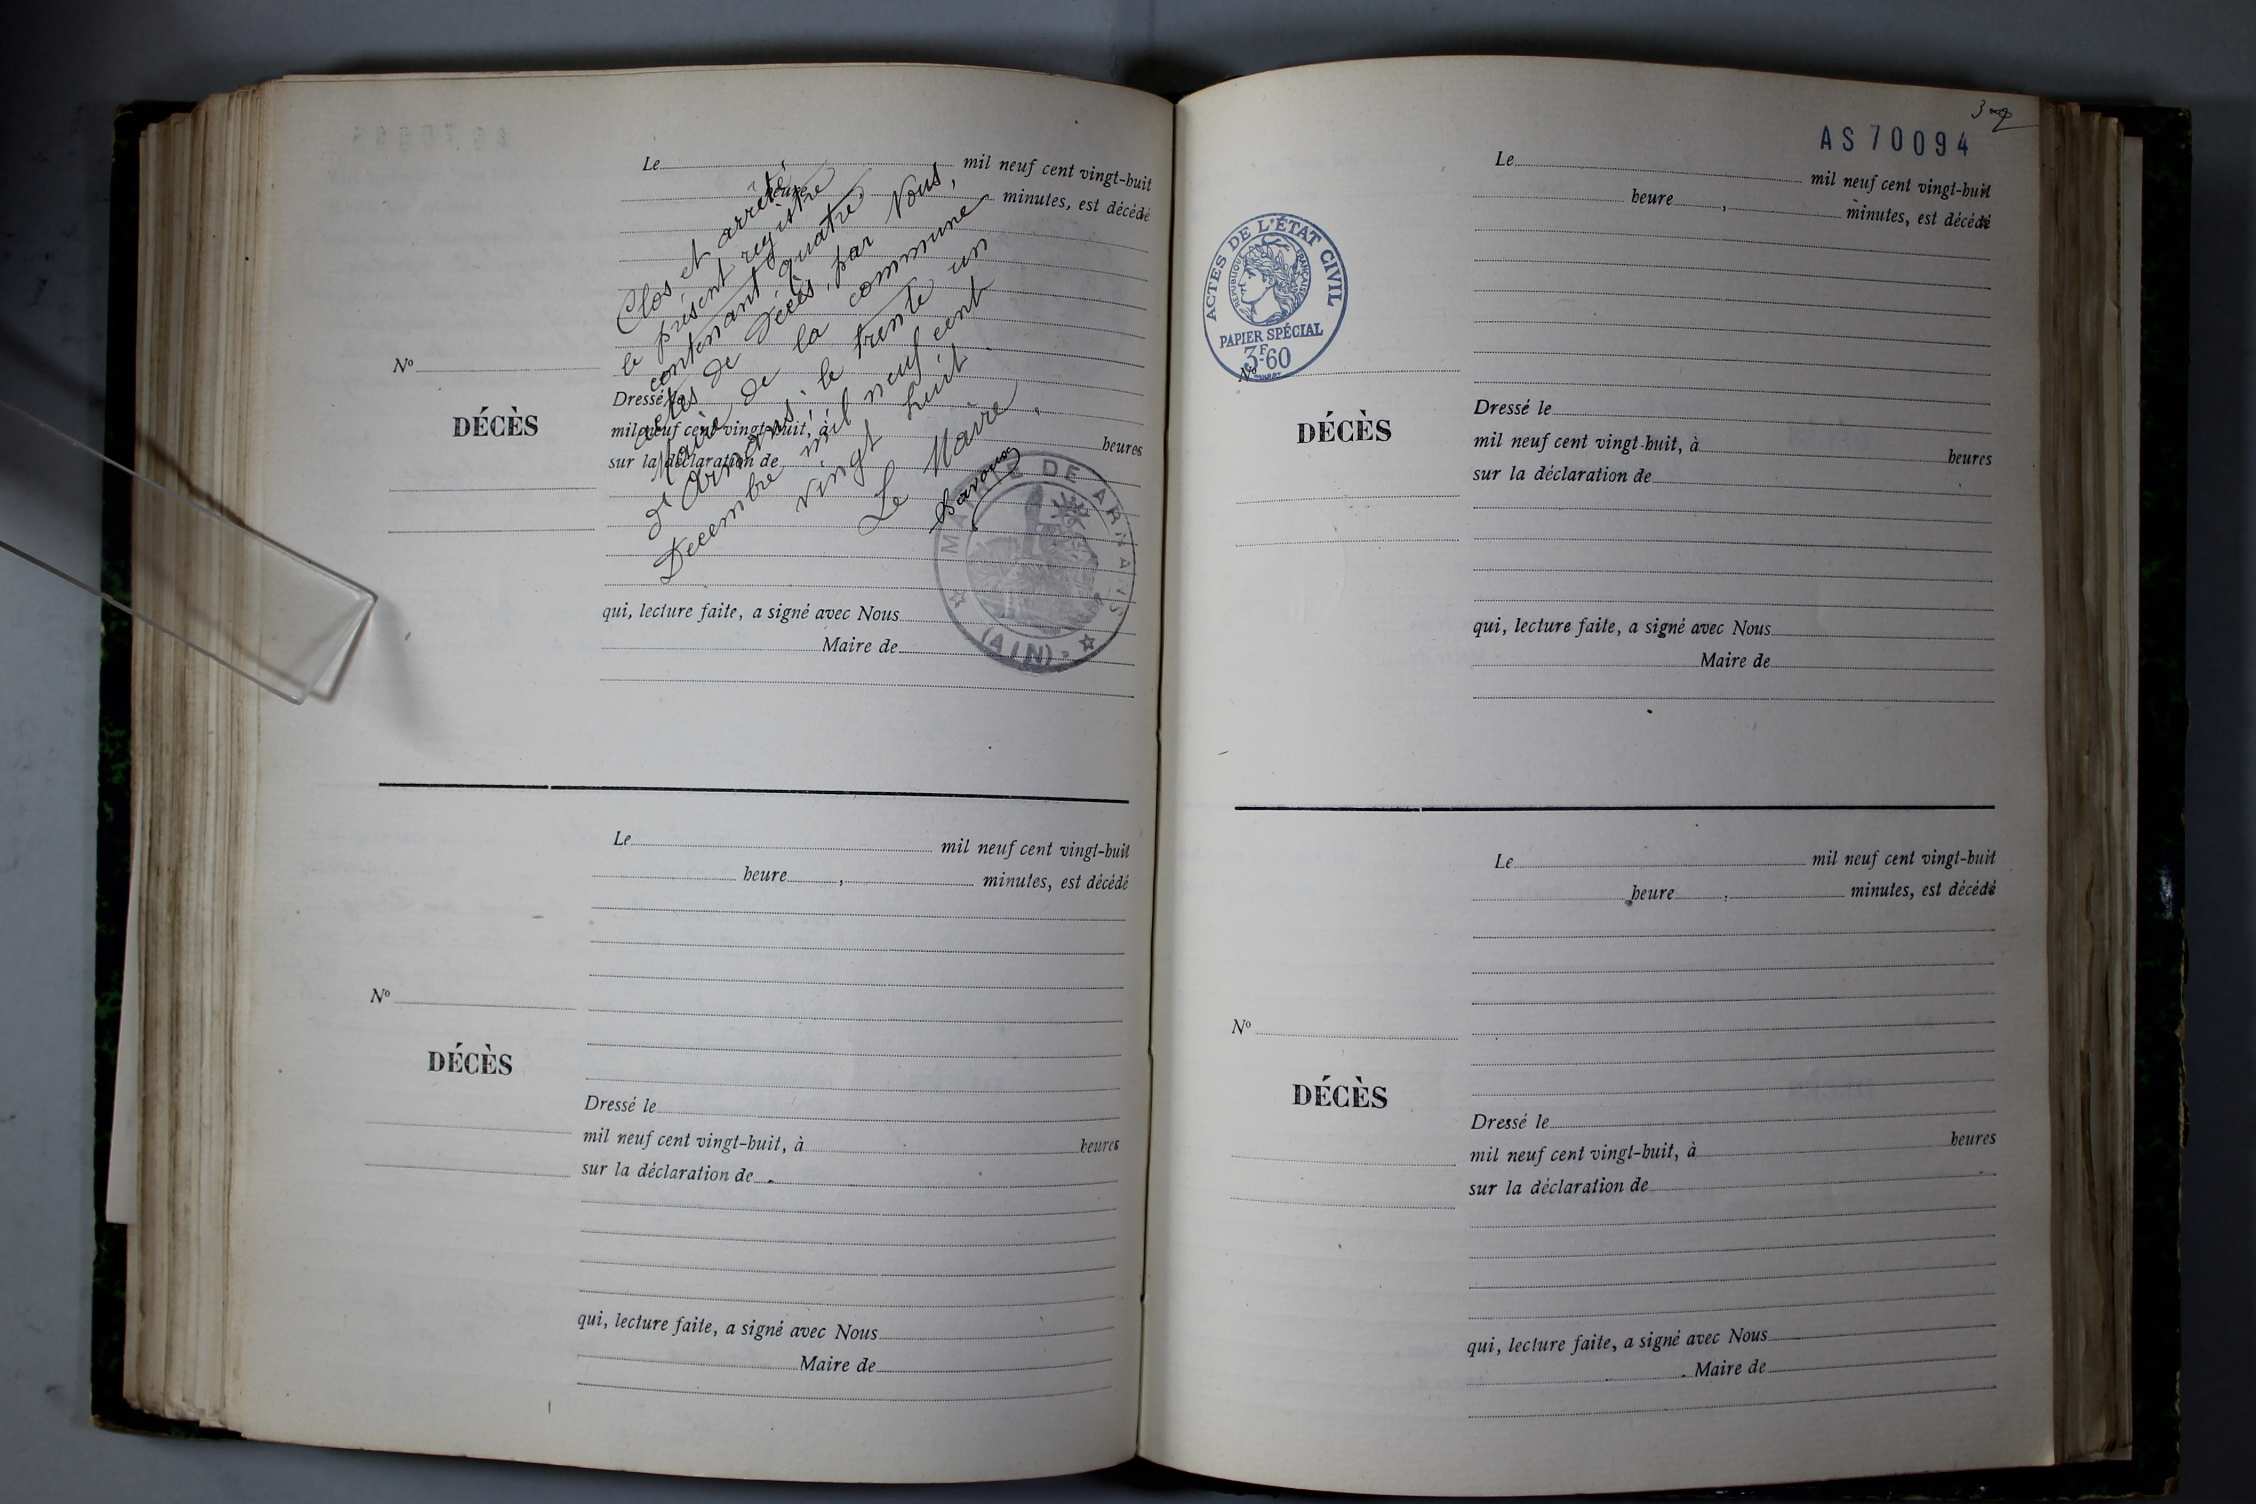 Le mil neuf cent vingt-huit
heure minutes, est décédé
Clos et arrêté
le présent registre
contenant quatre
actes de décès, par Nous,
Maire de la commune
d'Arnans, le trente un
Décembre mil neuf cent
vingt huit.
Le Maire,
MAIRIE DE ARNANS
(AIN)
No
DÉCÈS
Dressé le
mil neuf cent vingt-huit, à heures
sur la déclaration de
qui, lecture faite, a signé avec Nous
Maire de
Le mil neuf cent vingt-huit
heure , minutes, est décédé
No
DÉCÈS
Dressé le
mil neuf cent vingt-huit, à heures
sur la déclaration de
qui, lecture faite, a signé avec Nous
Maire de
AS 70094
Le mil neuf cent vingt-huit
heure , minutes, est décédé
ACTES DE L'ÉTAT CIVIL
RÉPUBLIQUE FRANÇAISE
PAPIER SPÉCIAL
3F60
No
DÉCÈS
Dressé le
mil neuf cent vingt-huit, à heures
sur la déclaration de
qui, lecture faite, a signé avec Nous
Maire de
Le mil neuf cent vingt-huit
heure , minutes, est décédé
No
DÉCÈS
Dressé le
mil neuf cent vingt-huit, à heures
sur la déclaration de
qui, lecture faite, a signé avec Nous
Maire de